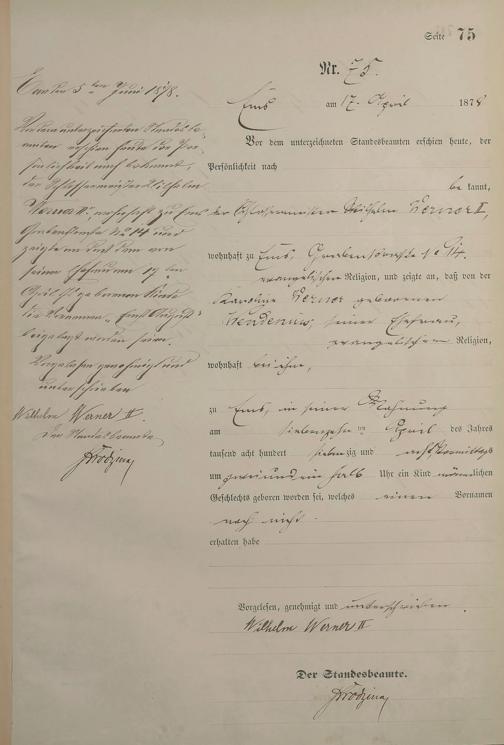 Seite 75
Nr. 75.
Ems am 17. April 1878
Vor dem unterzeichneten Standesbeamten erschien heute, der
Persönlichkeit nach
bekannt,
der Schlossermeister Wilhelm Werner II,
wohnhaft zu Ems, Grabenstraße No 14.
evangelischer Religion, und zeigte an, daß von der
Karoline Werner geborenen
seiner Ehefrau,
evangelischer Religion,
wohnhaft bei ihm,
zu Ems, in seiner Wohnung
am siebenzehnten April des Jahres
tausend acht hundert siebenzig und acht Vormittags
um zwei und ein halb Uhr ein Kind männlichen
Geschlechts geboren worden sei, welches einen Vornamen
noch nicht
erhalten habe
Vorgelesen, genehmigt und unterschrieben.
Wilhelm Werner II
Der Standesbeamte.
Ems den 5ten Juni 1878.
Vor dem unterzeichneten Standesbe-
amten erschien heute der Per-
sönlichkeit nach bekannt,
der Schlossermeister Wilhelm
Werner II, wohnhaft zu Ems
Grabenstraße No 14 und
zeigte an, daß dem von
seiner Ehefrau 17ten
April geborenen Kinde
die Vornamen
beigelegt worden seien.
Vorgelesen genehmigt und
unterschrieben
Wilhelm Werner II
Der Standesbeamte